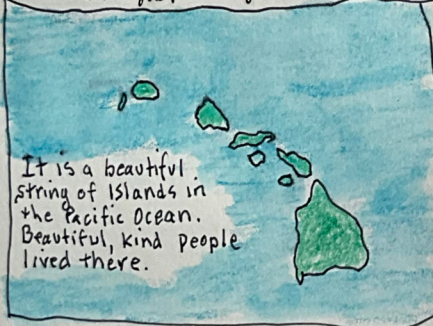 It is a beautiful
string of Islands in
the Pacific Ocean.
Beautiful, kind people
lived there.